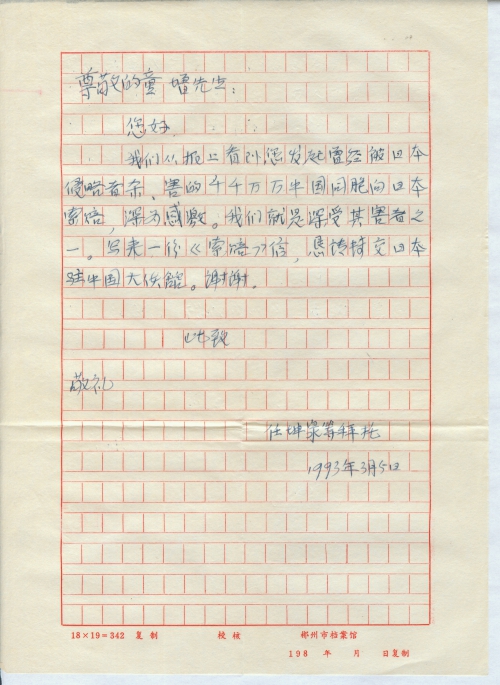 尊敬的童 增先生：
您好．
我们从报上看到您发起曾经被日本
侵略者杀、害的千千万万中国同胞向日本
索赔，深为感激。我们就是深受其害者之
一。写来一份《索赔》信，恳请转交日本
驻中国大使館。谢谢．
此致
敬礼
任坤泉等拜托
1993年3月5日
18×19=342 复制 校核 郴州市档案馆
198 年 月 日复制